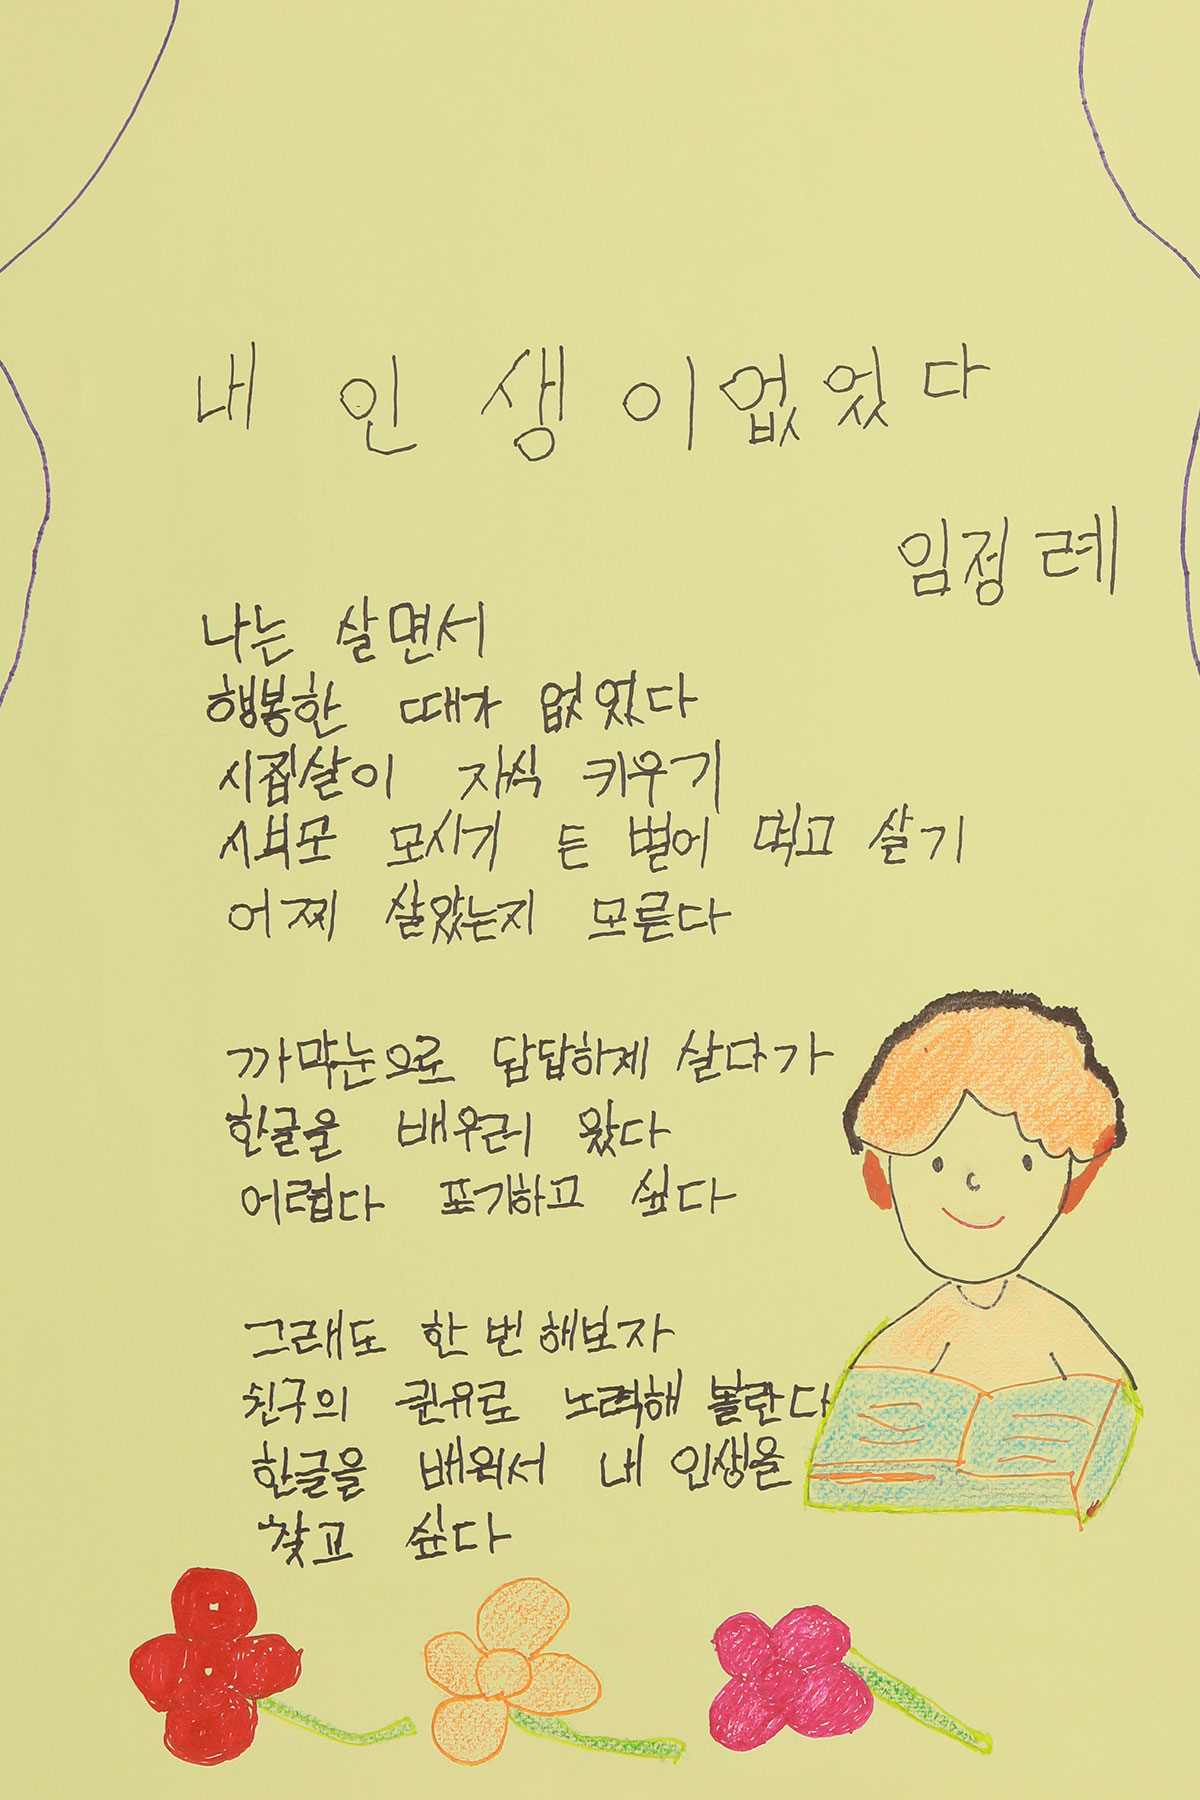 내 인생이 없었다
임정례
나는 살면서
행봉한 때가 없었다
시집살이 자식 키우기
시부모 모시기 든 벌어 먹고 살기
어찌 살았는지 모른다
까막눈으로 답답하게 살다가
한글을 배우러 왔다
어렵다 포기하고 싶다
그래도 한번 해보자
친구의 권유로 노력해 볼란다
한글을 배워서 내 인생을
찾고 싶다